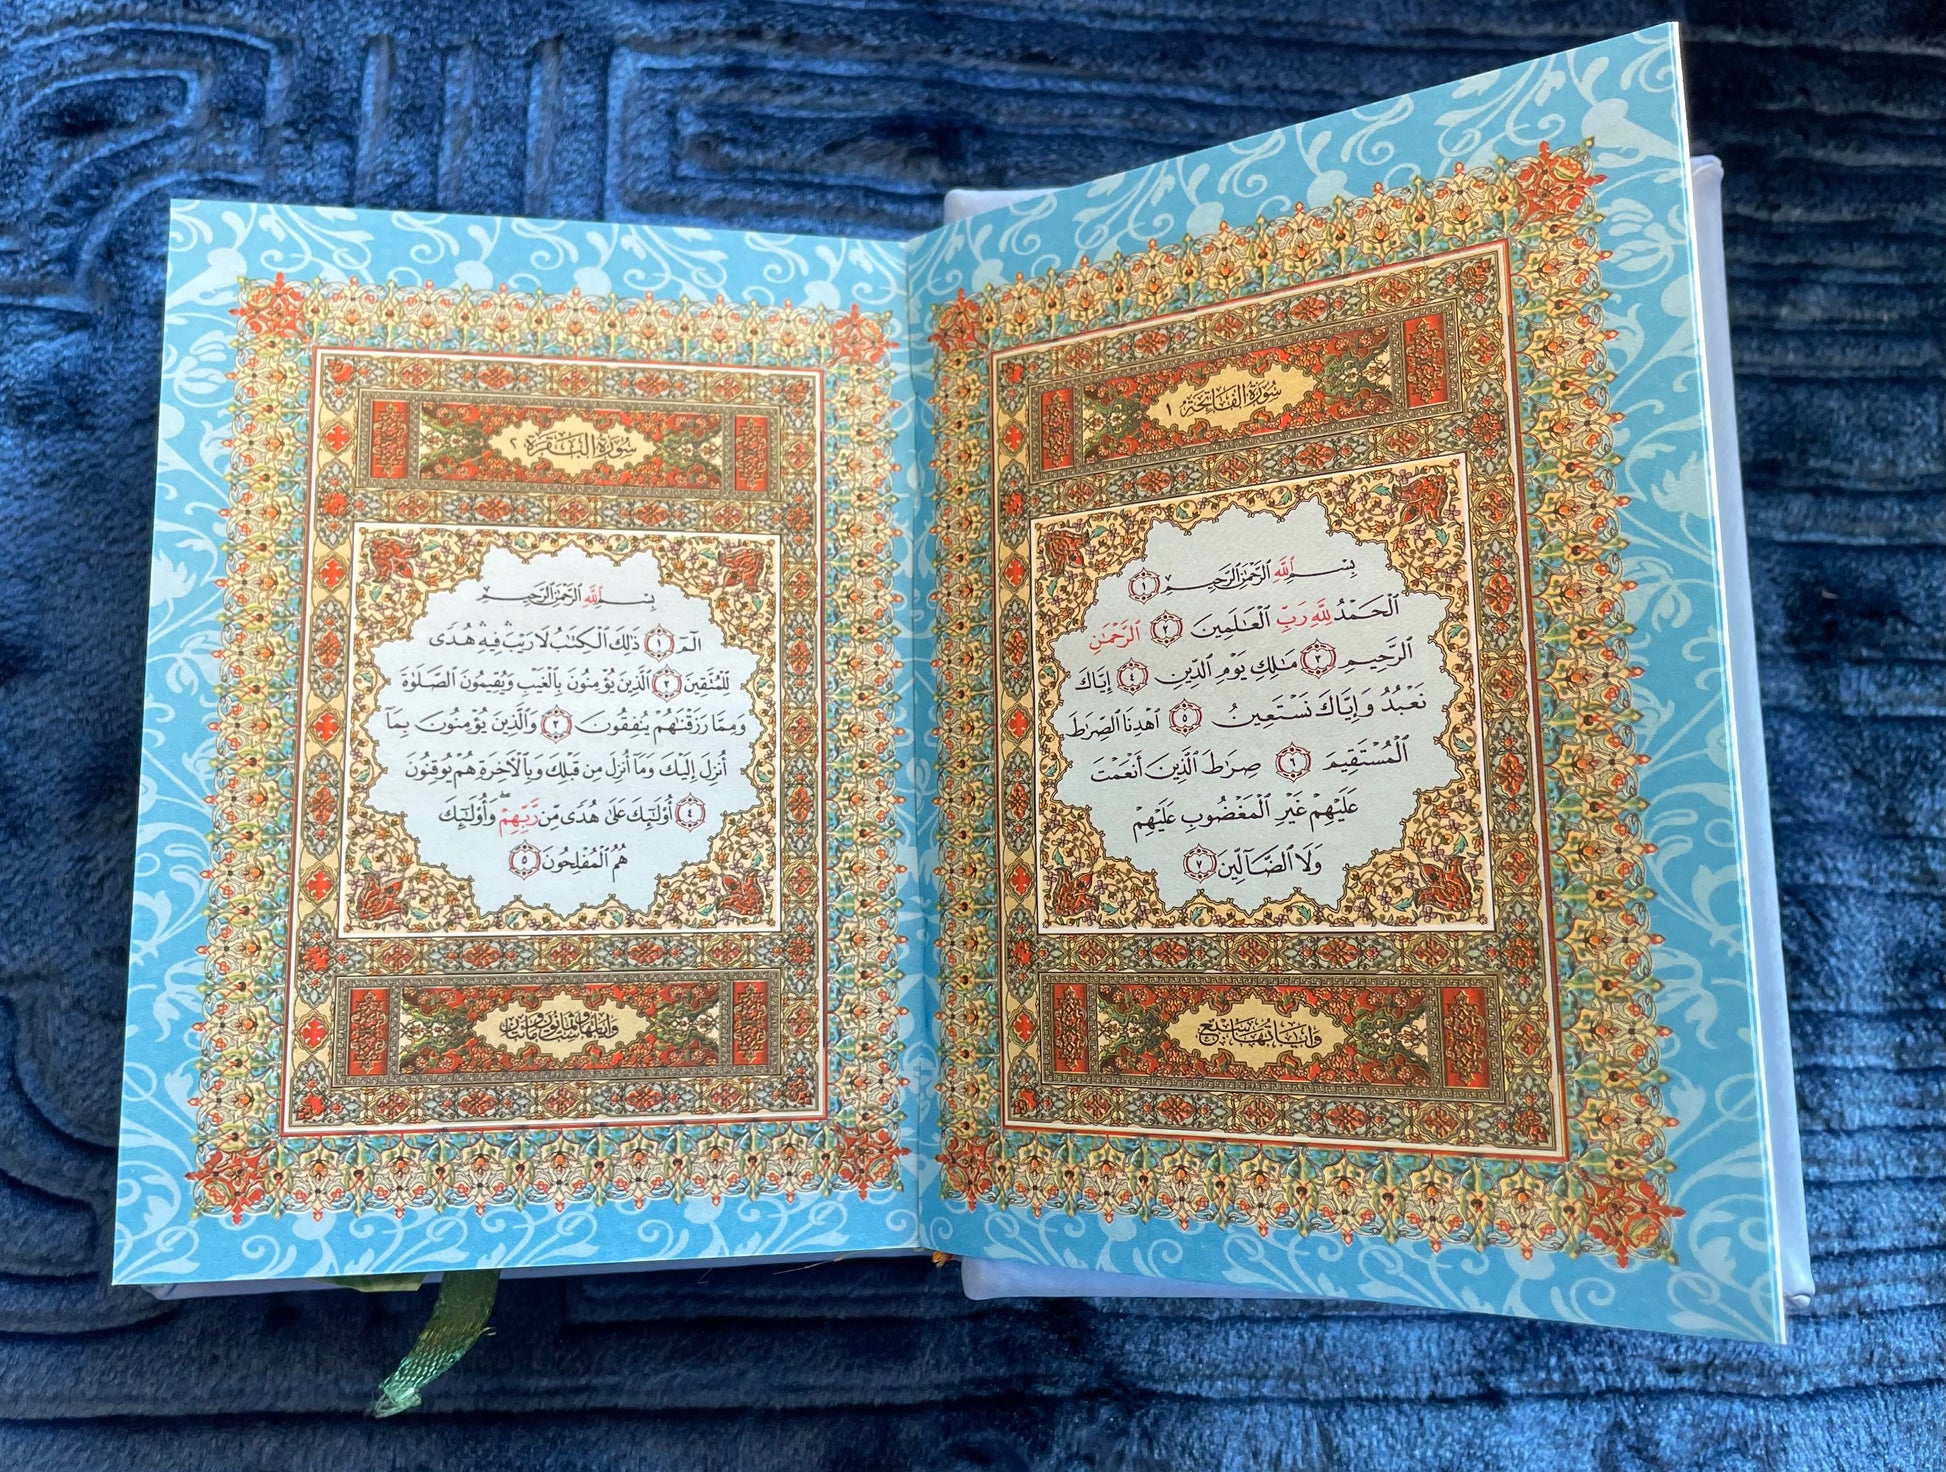 سُورَةُ الفَاتِحَة ١
بِسْمِ ٱللَّهِ ٱلرَّحْمَٰنِ ٱلرَّحِيمِ ١
ٱلْحَمْدُ لِلَّهِ رَبِّ ٱلْعَٰلَمِينَ ٢ ٱلرَّحْمَٰنِ
ٱلرَّحِيمِ ٣ مَٰلِكِ يَوْمِ ٱلدِّينِ ٤ إِيَّاكَ
نَعْبُدُ وَإِيَّاكَ نَسْتَعِينُ ٥ ٱهْدِنَا ٱلصِّرَٰطَ
ٱلْمُسْتَقِيمَ ٦ صِرَٰطَ ٱلَّذِينَ أَنْعَمْتَ
عَلَيْهِمْ غَيْرِ ٱلْمَغْضُوبِ عَلَيْهِمْ
وَلَا ٱلضَّآلِّينَ ٧
وَآيَاتُهَا سَبْع
سُورَةُ البَقَرَة ٢
بِسْمِ ٱللَّهِ ٱلرَّحْمَٰنِ ٱلرَّحِيمِ
الٓمٓ ١ ذَٰلِكَ ٱلْكِتَٰبُ لَا رَيْبَ ۛ فِيهِ ۛ هُدًى
لِّلْمُتَّقِينَ ٢ ٱلَّذِينَ يُؤْمِنُونَ بِٱلْغَيْبِ وَيُقِيمُونَ ٱلصَّلَوٰةَ
وَمِمَّا رَزَقْنَٰهُمْ يُنفِقُونَ ٣ وَٱلَّذِينَ يُؤْمِنُونَ بِمَآ
أُنزِلَ إِلَيْكَ وَمَآ أُنزِلَ مِن قَبْلِكَ وَبِٱلْأَخِرَةِ هُمْ يُوقِنُونَ
٤ أُو۟لَٰٓئِكَ عَلَىٰ هُدًى مِّن رَّبِّهِمْ ۖ وَأُو۟لَٰٓئِكَ
هُمُ ٱلْمُفْلِحُونَ ٥
وَآيَاتُهَا سِتٌّ وَثَمَانُونَ وَمِائَتَان